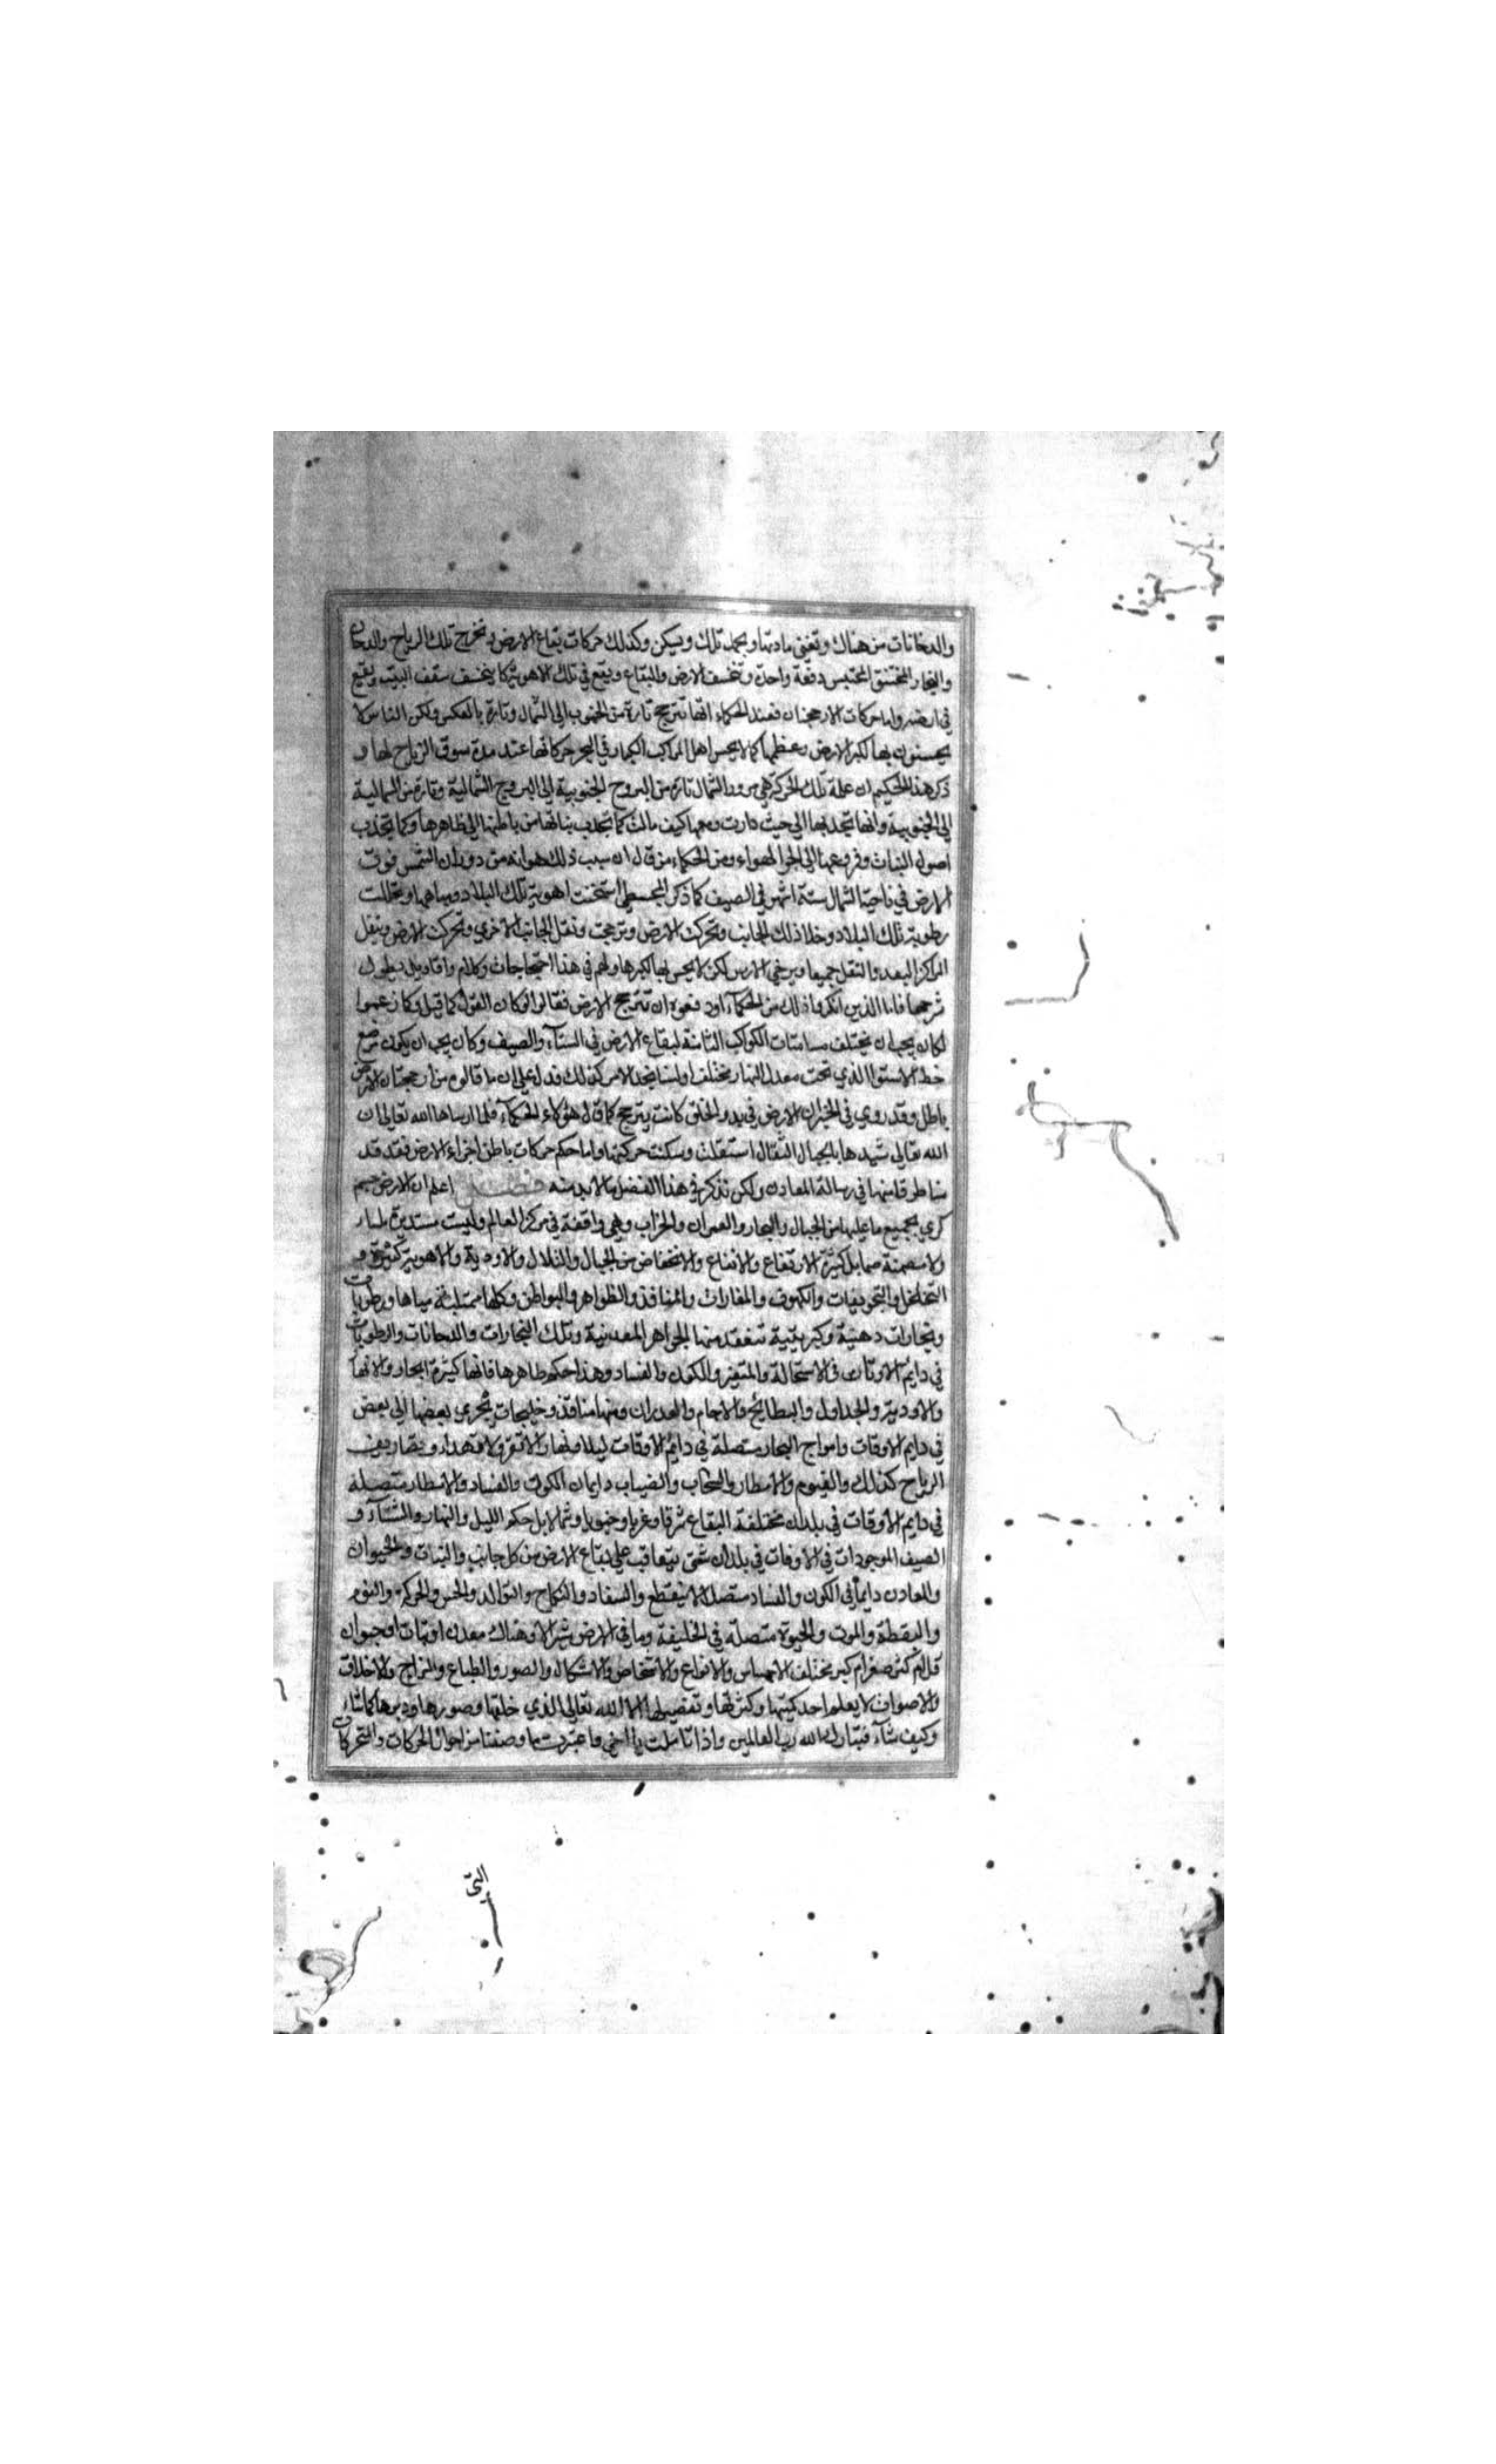 والدخانات من هناك وتفنى مادتها ويخمد تلك ويسكن وكذلك حركات بقاع الارض تخرج تلك الرياح والدخان
والبخار المختنق المحتبس دفعة واحدة وتخسف الارض والبقاع ويقع في تلك الاهوية كما ينخسف سقف البيت ويقع
في ارضه واما حركات الارجحنان فعند الحكماء انها تترجح تارة من الجنوب الى الشمال وتارة بالعكس ولكن الناس لا
يحسنون بها لكبر الارض وعظمها كما لا يحس اهل المراكب الكبار في البحر حركاتها عند مدة سوق الرياح لها و
ذكر هذا الحكيم ان علة تلك الحركة هي مرور الشمال تارة من البروج الجنوبية الى البروج الشمالية وتارة من الشمالية
الى الجنوبية وانها تجذبها الى حيث دارت معها كيف مالت كما تجذب نباتها من باطنها الى ظاهرها وكما تجذب
اصول النبات وفروعها الى الجو الهواء ومن الحكماء من قال ان سبب ذلك هو انه من دوران الشمس فوق
الارض في ناحية الشمال ستة اشهر في الصيف كما ذكر المجسطي استخنت اهوية تلك البلاد ومياهها وتحللت
رطوبة تلك البلاد وخلا ذلك الجانب وتحركت الارض وترجحت وثقل الجانب الاخرى وتحركت الارض وينقل
المراكز البعد والثقل جميعا ويرجحن الارض لكن لا يحس لها لكبرها ولهم في هذا احتجاجات وكلام واقاويل يطول
شرحها فاما الذين انكروا ذلك من الحكماء ودفعوه ان تترجح الارض فقالوا لو كان القول كما قيل وكما زعموا
لكان يجب ان يختلف مسامتات الكواكب الثابتة لبقاع الارض في الشتاء والصيف وكان يجب ان يكون موضع
خط الاستواء الذي تحت معدل النهار مختلفا ولسنا نجد الامر كذلك فدل على ان ما قالوه من ارجحنان الارض
باطل وقد روي في الخبر ان الارض في بدو الخلق كانت يترجح كما قال هؤلاء الحكماء فلما ارساها الله تعالى ان
الله تعالى شيدها بالجبال الثقال استقلت وسكنت حركتها واما حكم حركات باطن اجزاء الارض فقد قد
منا طرفا منها في رسالة المعادن ولكن نذكر في هذا الفصل ما لابد منه فصل اعلم ان الارض جسم
كري بجميع ما عليها من الجبال والبحار والعمران والخراب وهي واقفة في مركز العالم وليست مستديرة ملساء
ولا مصمتة صما بل كثيرة الارتفاع والانفاع والانخفاض من الجبال والتلال والاودية والاهوية كثيرة و
التخلخل والتجويفات والكهوف والمغارات والمنافذ والظواهر والبواطن وكلها ممتلئة مياها ورطوبات
وبخارات دهنية وكبريتية تنعقد منها الجواهر المعدنية وتلك البخارات والدخانات والرطوبات
في دايم الاوقات في الاستحالة والتغير والكون والفساد وهذا حكم ظاهرها فانها كثيرة البحار والانها
والاودية والجداول والبطائح والاجام والغدران ومنها منافذ وخليجات تجري بعضها الى بعض
في دايم الاوقات وامواج البحار متصلة في دايم الاوقات ليلا ونهارا لا تقر ولا تهدا وتصاريف
الرياح كذلك والغيوم والامطار والسحاب والضباب دايمان الكون والفساد والامطار متصلة
في دايم الاوقات في بلدان مختلفة البقاع شرقا وغربا وجنوبا وشمالا بل حكم الليل والنهار والشتاء و
الصيف الموجودات في الاوقات في بلدان شتى يتعاقب على بقاع الارض من كل جانب والنبات والحيوان
والمعادن دايما في الكون والفساد متصلا لا ينقطع والسفاد والنكاح والتوالد والحس والحركة والنوم
واليقظة والموت والحيوة متصلة في الخليقة وما في الارض شبر الا وهناك معدن او نبات او حيوان
قل ام كثر صغر ام كبر مختلف الاجناس والانواع والاشخاص والاشكال والصور والطباع والمزاج والاخلاق
والاصوات لا يعلم احد كميتها وكثرتها وتفصيلها الا الله تعالى الذي خلقها وصورها ودبرها كما شاء
وكيف شاء فتبارك الله رب العالمين واذا تاملت يا اخي واعتبرت ما وصفنا من احوال الحركات والتحركات
التي